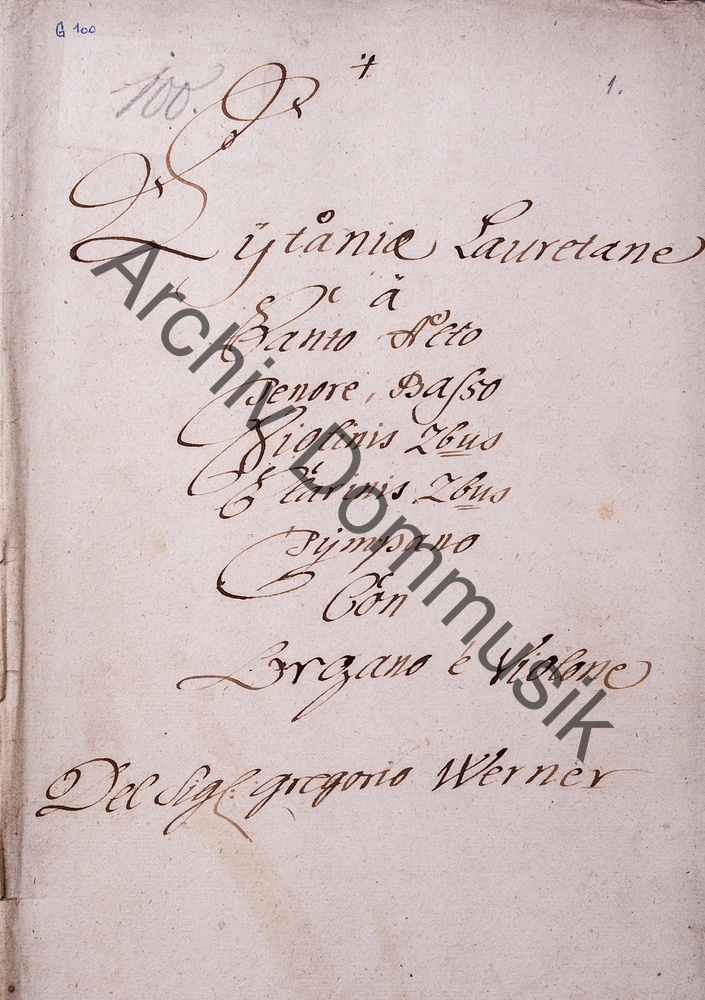 G 100
100.
1.
Lÿtåniæ Lauretane
ä
Canto Alto
Tenore, Basso
Violinis 2bus
Clarinis 2bus
Tÿmpano
Con
Organo è Violone
Del Sigl: gregorio Werner
Archiv Dommusik